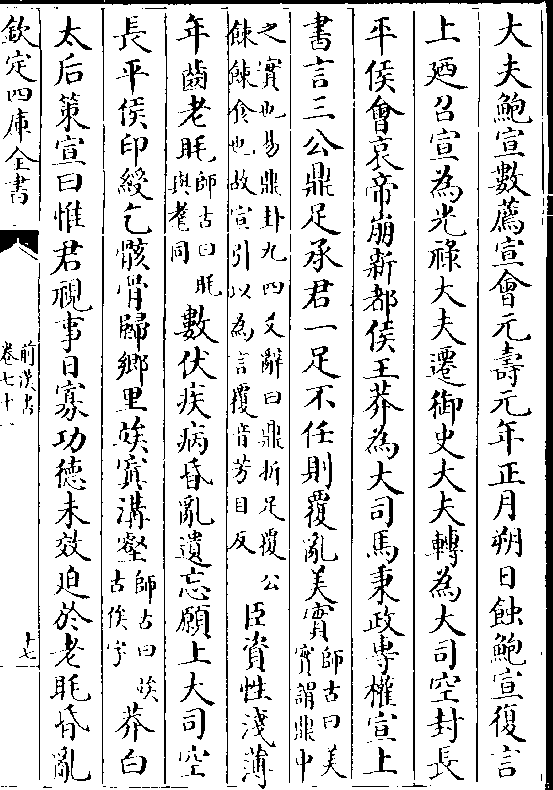 大夫鮑宣數薦宣會元壽元年正月朔日蝕鮑宣復言
上廼召宣為光祿大夫遷御史大夫轉為大司空封長
平侯會哀帝崩新都侯王莽為大司馬秉政專權宣上
書言三公鼎足承君一足不任則覆亂美實
師古曰美
實謂鼎中
之實也易鼎卦九四爻辭曰鼎折足覆公
餗餗食也故宣引以為言覆音芳目反
臣資性淺薄
年齒老眊
師古曰眊
與耄同
數伏疾病昏亂遺忘願上大司空
長平侯印綬乞骸骨歸鄉里竢寘溝壑
師古曰竢
古俟字
莽白
太后策宣曰惟君視事日寡功德未效迫於老眊昏亂
欽定四庫全書
前漢書
卷七十一
十七